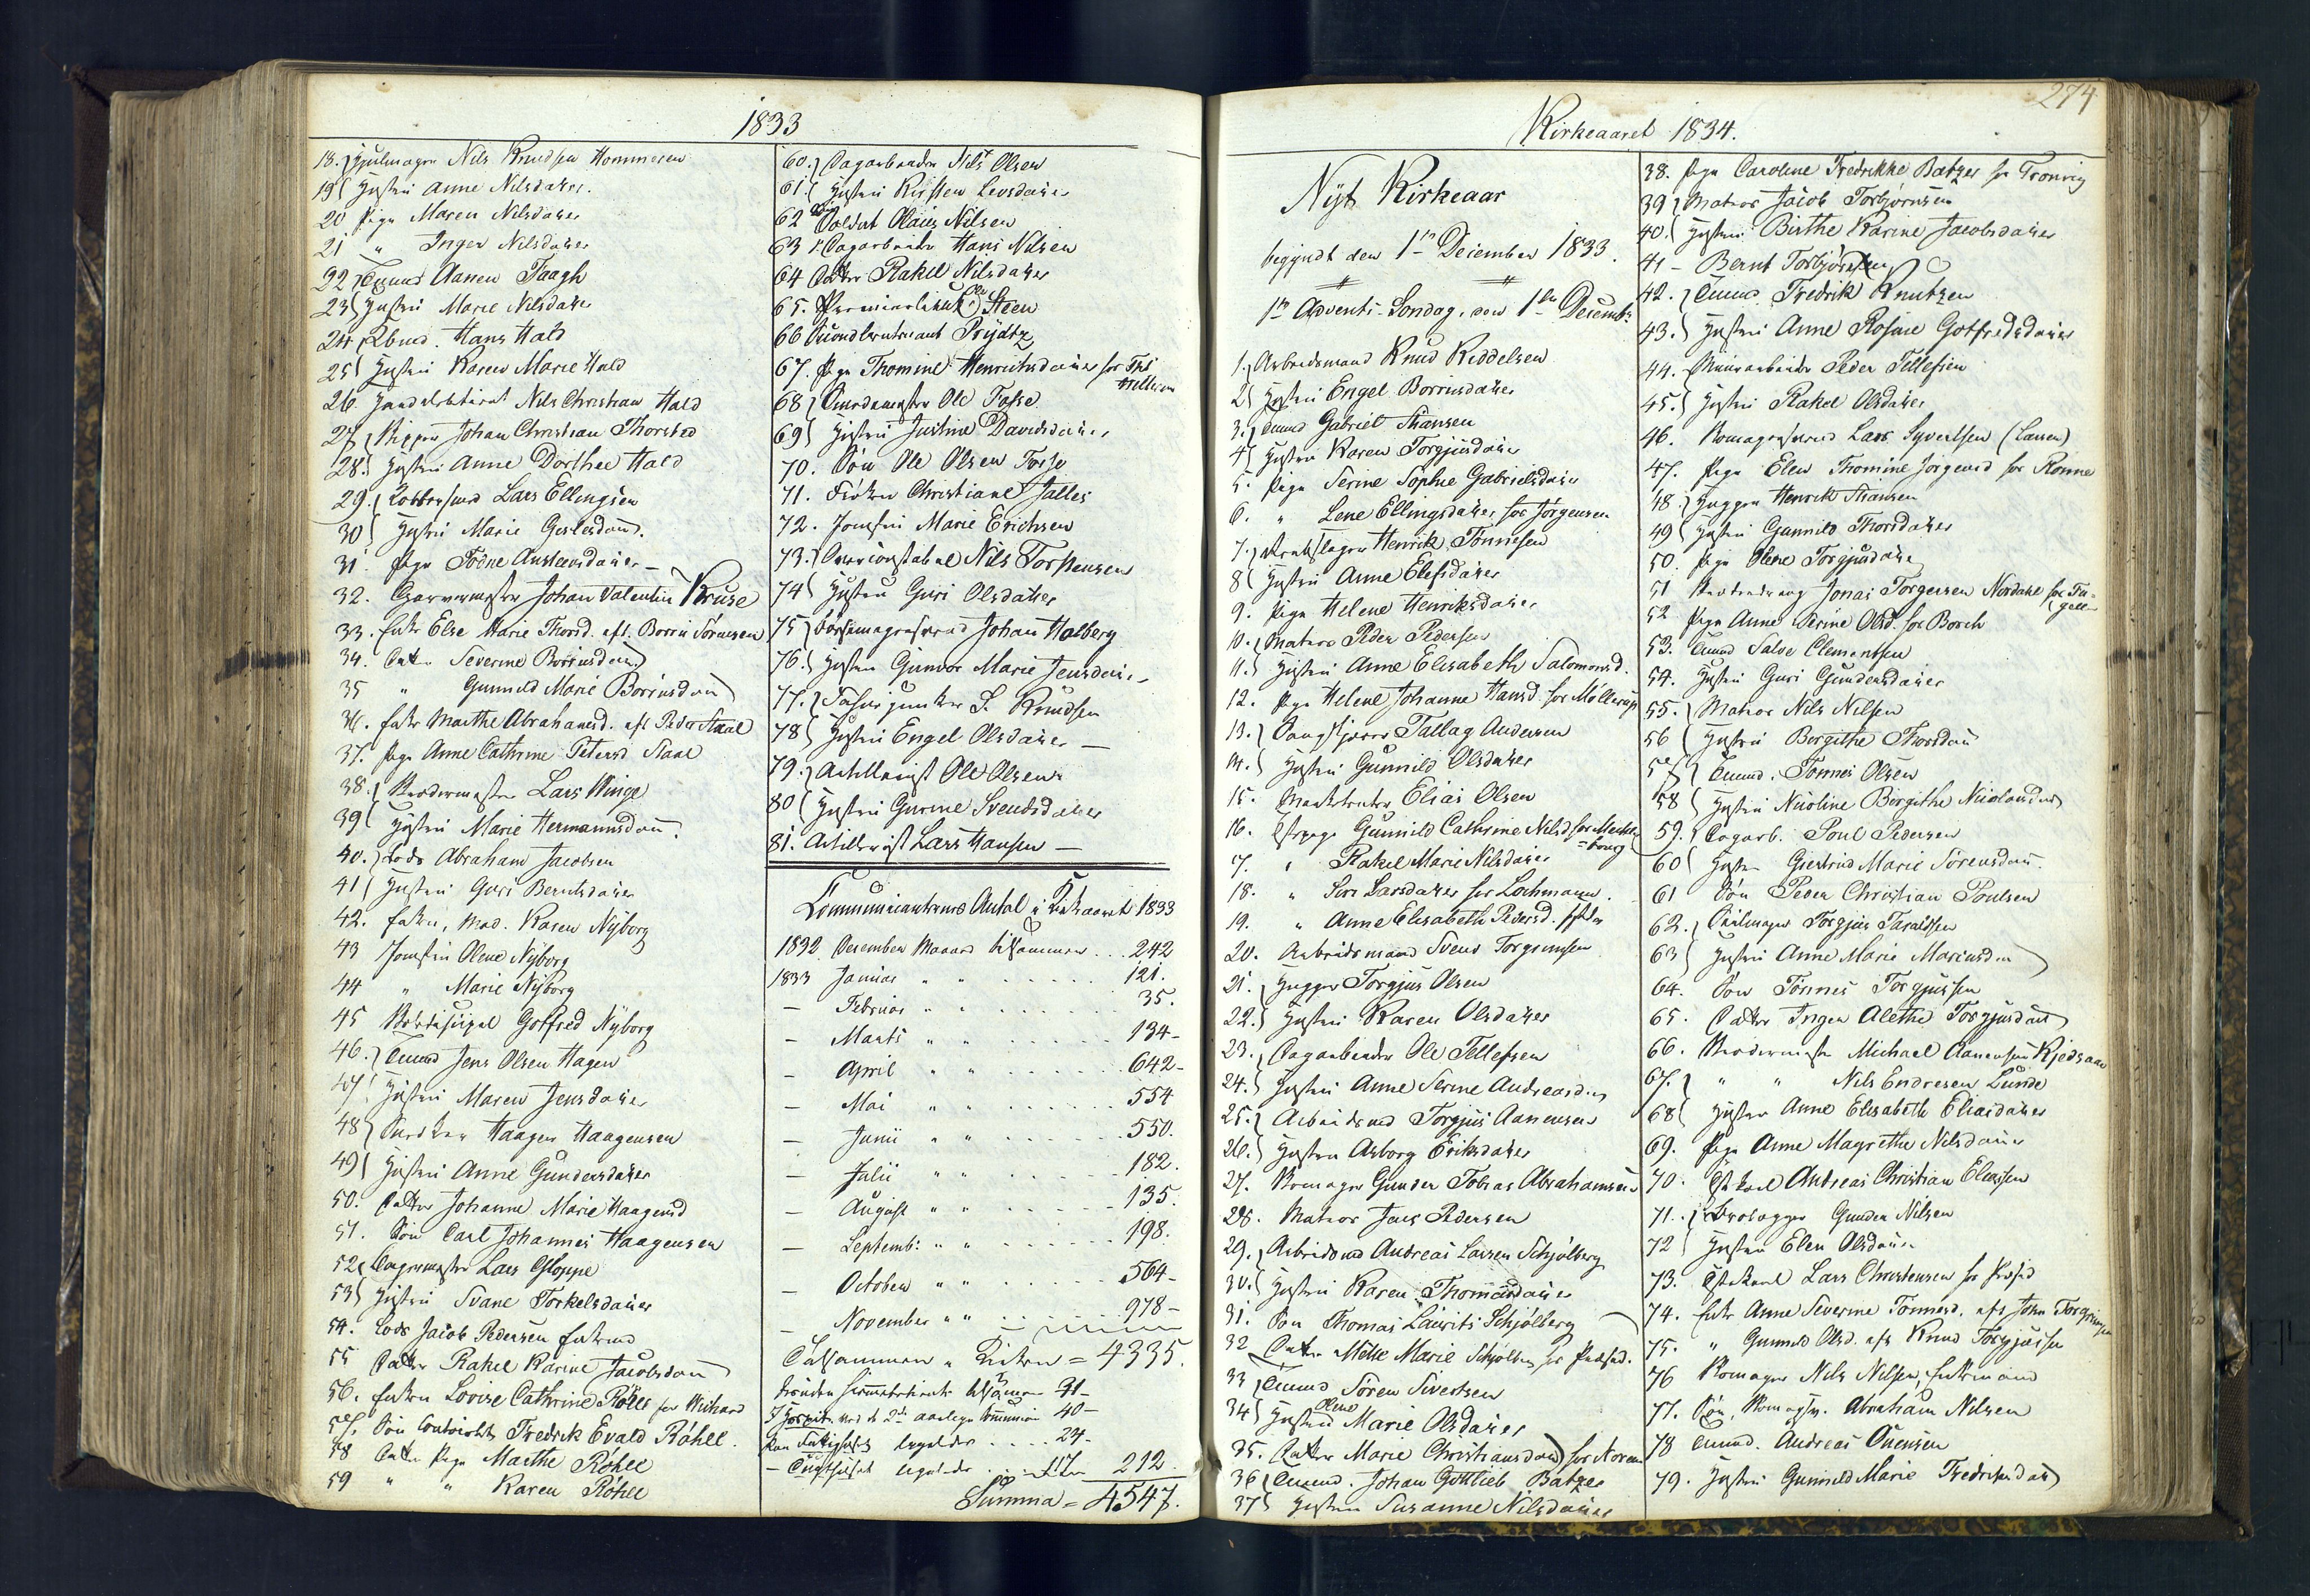 1833
18. Hjulmager Nils Knudsen Hommeren
19 Hustru Anne Nilsdatter.
20 Pige Maren Nilsdatter
21 " Inger Nilsdatter
22 Tmmd Aanen Taagh
23 Hustru Marie Nilsdatter
24 Hans Hald
25 Hustru Karen Marie Hald
26. Nils Christian Hald
27 Skipper Johan Christian Thorsted
28. Hustru Anne Dorthee Hald
29. Lars Ellingsen
30 Hustru Marie
31. Pige Todne
32. Garvermester Johan Valentin Kruse
33. Enke Else Marie Thorsd. eft. Borre Sørensen
34. Datter Severine
35 " Gunnild Marie
36. Enke Marthe Abrahamsd. eft Peder Staal
37. Pige Anne Cathrine Petersd Staal
38. Lars Winge
39 Hustru Marie Hermannsdatt.
40. Lods Abraham Jacobsen
41 Hustru Guri Berntsdatter
42. Enken, Mad. Karen Nyborg
43 Jomfru Olene Nyborg
44 " Marie Nyborg
45 Gotfred Nyborg
46. Tmmd Jens Olsen Hagen
47 Hustru Maren Jensdatter
48 Snedker Haagen Haagensen
49 Hustru Anne Gundersdatter
50. Datter Johanne Marie Haagensd
51. Søn Carl Johannes Haagensen
52 Bagermester Lars Gloppe
53 Hustru Svane Torkelsdatter
54. Lods Jacob Pedersen Enkemd
55 Datter Rakel Karine Jacobsdatt
56. Enken Lovise Cathrine Röhll
57. Søn Fredrik Evald Röhll.
58 Datter Pige Marthe Röhll
59 " " Karen Röhll
60. Dagarbeider Nils Olsen
61 Hustru Kirsten
62 Soldat Olaus Nilsen
63 Dagarbeider Hans Nilsen
64 Datter Rakel Nilsdatter
65. Premierlieut. Steen
66 Secondlieutenant Prydtz
67. Pige Thomine Henrichsdatter for
68 Smedemester Ole Fosse
69 Hustru Justine Davidsdatter
70. Søn Ole Olsen Fosse
71. Frøken Christiane
72. Jomfru Marie Erichsen
73. Overconstabel Nils Torstensen
74 Hustru Guri Olsdatter
75 Johan Holberg
76. Hustru Gunvor Marie Jensdatter
77. S. Knudsen
78 Hustru Engel Olsdatter —
79. Artillerist Ole Olsen
80 Hustru Gurine Svendsdatter
81. Artillerist Lars Hansen —
Communicanternes Antal i Kirkeaaret 1833
1832 December Maaned tilsammen ... 242
1833 Januar " " ..... 121.
— Februar " " ..... 35.
— Marts " " ..... 134-
— April " " ..... 642-
— Mai " " ..... 554
— Junii " " ..... 550.
— Julii " " ..... 182.
— August " " ..... 135.
— Septemb: " " ..... 198.
— October " " ..... 564-
— November " " ..... 978-
Tilsammen i Kirken = 4335.
40-
24-
212.
Summa = 4547.
274
Kirkeaaret 1834.
Nyt Kirkeaar
begyndt den 1ste December 1833.
1ste Advents-Søndag, den 1ste Decemb:
1. Arbeidsmand Knud Reddelsen
2 Hustru Engel
3. Tmmd Gabriel Hansen
4 Hustru Karen Torgjusdatter
5. Pige Serine Sophie Gabrielsdatter
6. " Lene Ellingsdatter for Jörgensen
7. Henrik Tönnesen
8 Hustru Anne
9. Pige Helene Henriksdatter
10. Matros Peder Pedersen
11. Hustru Anne Elisabeth Salomonsd.
12. Pige Helene Johanne Hansd. for Möllerup
13. Tallag Andersen
14. Hustru Gunnild Olsdatter
15. Elias Olsen
16. Gunnild Cathrine Nilsd
17. " Rakel Marie Nilsdatter
18. " Siri Larsdatter for Lochmann.
19. " Anne Elisabeth Pedersd.
20. Arbeidsmand Svend Torgrimsen
21. Torgjus Olsen
22. Hustru Karen Olsdatter
23. Dagarbeider Ole Tellefsen
24. Hustru Anne Serine
25. Arbeidsmd Torgjus Aanensen
26. Hustru Asborg Eriksdatter
27. Skomager Gunder Tobias Abrahamsen
28. Matros Jens Pedersen
29. Arbeidsmd Andreas Larsen Schjölberg
30. Hustru Karen Thomasdatter
31. Søn Thomas Laurits Schjölberg
32 Datter Mette Marie Schjölberg
33 Tmmd Sören Sivertsen
34 Hustru Olene Marie Olsdatter
35. Datter Marie Christiansdatt
36 Tmmd. Johan Gottlieb Batzer
37 Hustru Susanne Nilsdatter
38. Pige Caroline Fredrikke Batzer for Tronvig
39 Matros Jacob Torbjörnsen
40. Hustru Birthe Karine Jacobsdatter
41 — Bernt
42. Tmmd. Fredrik Knutzen
43. Hustru Anne Rosine Gotfredsdatter
44. Peder Tellefsen
45. Hustru Rakel Olsdatter
46. Skomagersvend Lars Syvertsen
47. Pige Elen Thomine Jörgensd for Rönne
48. Henrik Hansen
49 Hustru Gunnild Thorsdatter
50. Pige Olene Torgjusdatter
51 Jonas Torgersen
52 Pige Anne Serine Olsd. for Borch
53. Tmmd Salve Clementsen
54. Hustru Guri Gundersdatter
55. Matros Nils Nilsen
56 Hustru Borgithe Thorsdatt
57 Tmmd. Tönnes Olsen
58 Hustru Nicoline Birgithe
59. Dagarb. Poul Pedersen
60 Hustru Giertrud Marie Sörensdatt.
61 Søn Peder Christian Poulsen
62. Seilmager Torgjus Taraldsen
63 Hustru Anne Marie
64. Søn Tönnes Torgjussen
65. Datter Inger Alethe Torgjusdatt
66. Michael Aanensen
67. " " Nils Endresen Lunde
68 Hustru Anne Elisabeth Eliasdatter
69. Pige Anne Magrethe Nilsdatter
70. Andreas Christian Eliassen
71. Gunder Nilsen
72 Hustru Elen Olsdatter
73. Lars Christensen
74. Enke Anne Severine Tönnesd. eft John Torgrimsen
75. " Gunnild Olsd. eft Knud Torgjussen
76 Skomager Nils Nilsen, Enkemand
77. Søn, Abraham Nilsen
78 Tmmd. Andreas
79. Hustru Gunnild Marie